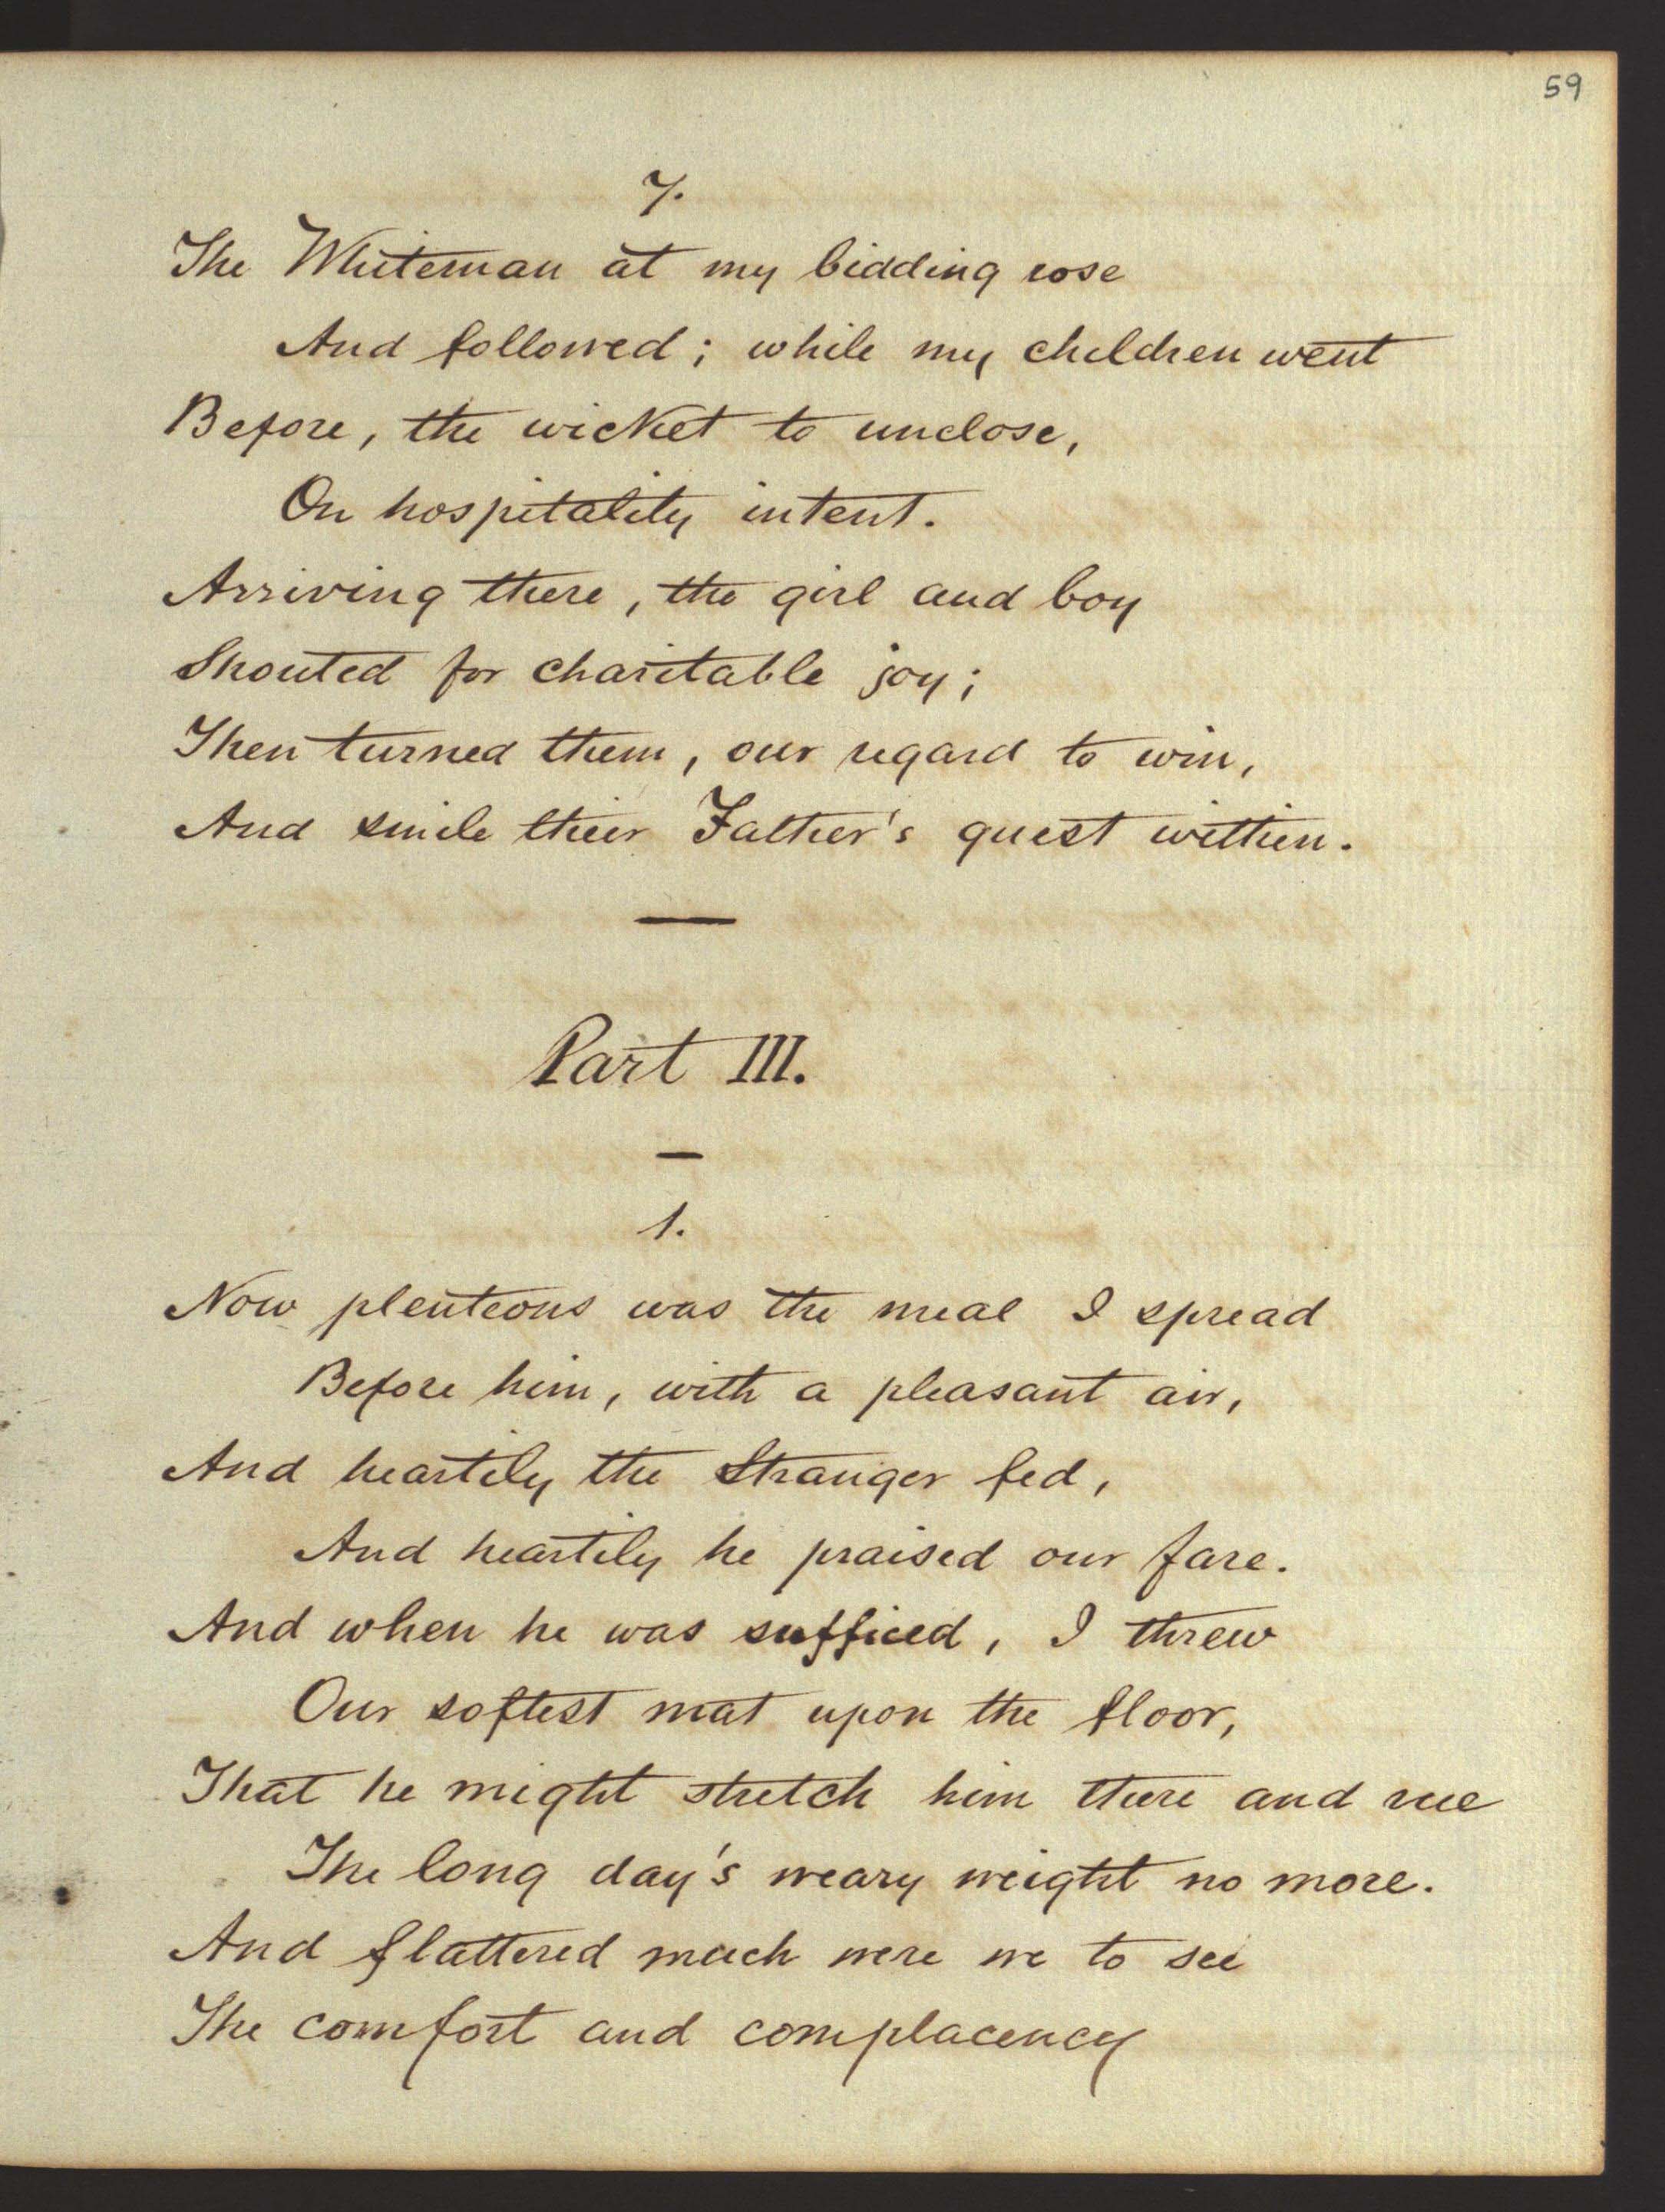 59
7.
The Whiteman at my bidding rose
And followed; while my children went
Before, the wicket to unclose,
On hospitality intent.
Arriving there, the girl and boy
Shouted for charitable joy;
Then turned them, our regard to win,
And smile their Father's guest within.
Part III.
1.
Now plenteous was the meal I spread
Before him, with a pleasant air,
And heartily the Stranger fed,
And heartily he praised our fare.
And when he was sufficed, I threw
Our softest mat upon the floor,
That he might stretch him there and rue
The long day's weary weight no more.
And flattered much were we to see
The comfort and complacency